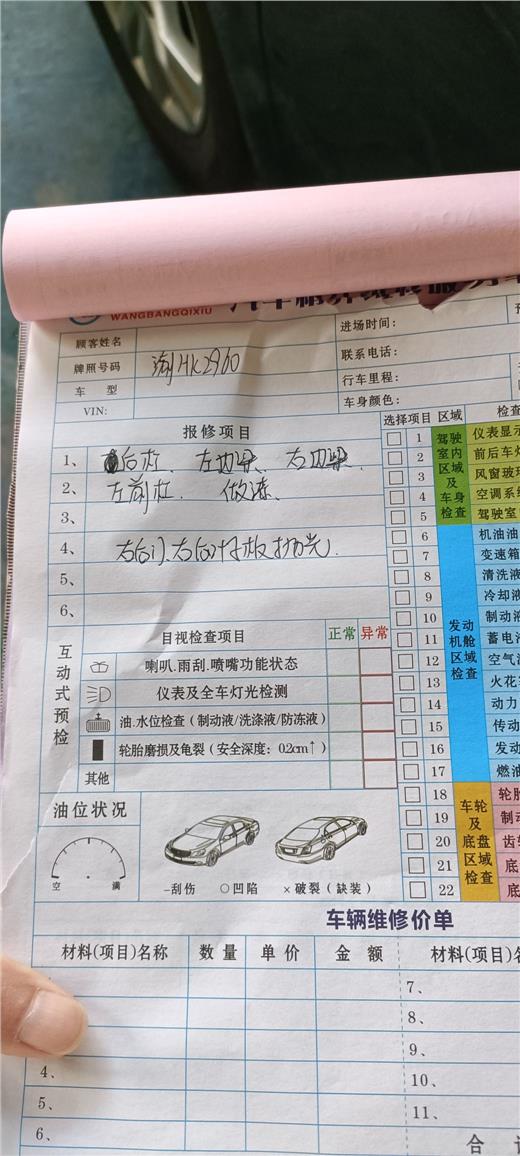 WANGBANGQIXIU
顾客姓名
进场时间：
牌照号码
HK2960
联系电话：
车 型
行车里程：
VIN:
车身颜色：
报修项目
选择项目 区域
1、
后杠、左边梁、右边梁、
2、
左前杠、做漆、
3、
4、
右后门、右后叶板抛光.
5、
6、
1
2
3
4
5
6
7
8
9
10
11
12
13
14
15
16
17
18
19
20
21
22
驾驶室内区域及车身检查
仪表显
前后车
风窗玻
空调系
驾驶室
发动机舱区域检查
机油油
变速箱
清洗液
冷却液
制动液
蓄电
空气
火花
动力
传动
发动
燃油
车轮及底盘区域检查
轮胎
制动
底
底
互动式预检
目视检查项目
正常
异常
喇叭.雨刮.喷嘴功能状态
仪表及全车灯光检测
油.水位检查（制动液/洗涤液/防冻液）
轮胎磨损及龟裂（安全深度：0.2cm↑）
其他
油位状况
空
满
–刮伤 ○凹陷 ×破裂（缺装）
车辆维修价单
材料(项目)名称
数 量
单 价
金 额
材料(项目)
7、
8、
9、
4、
10、
5、
11、
6、
合